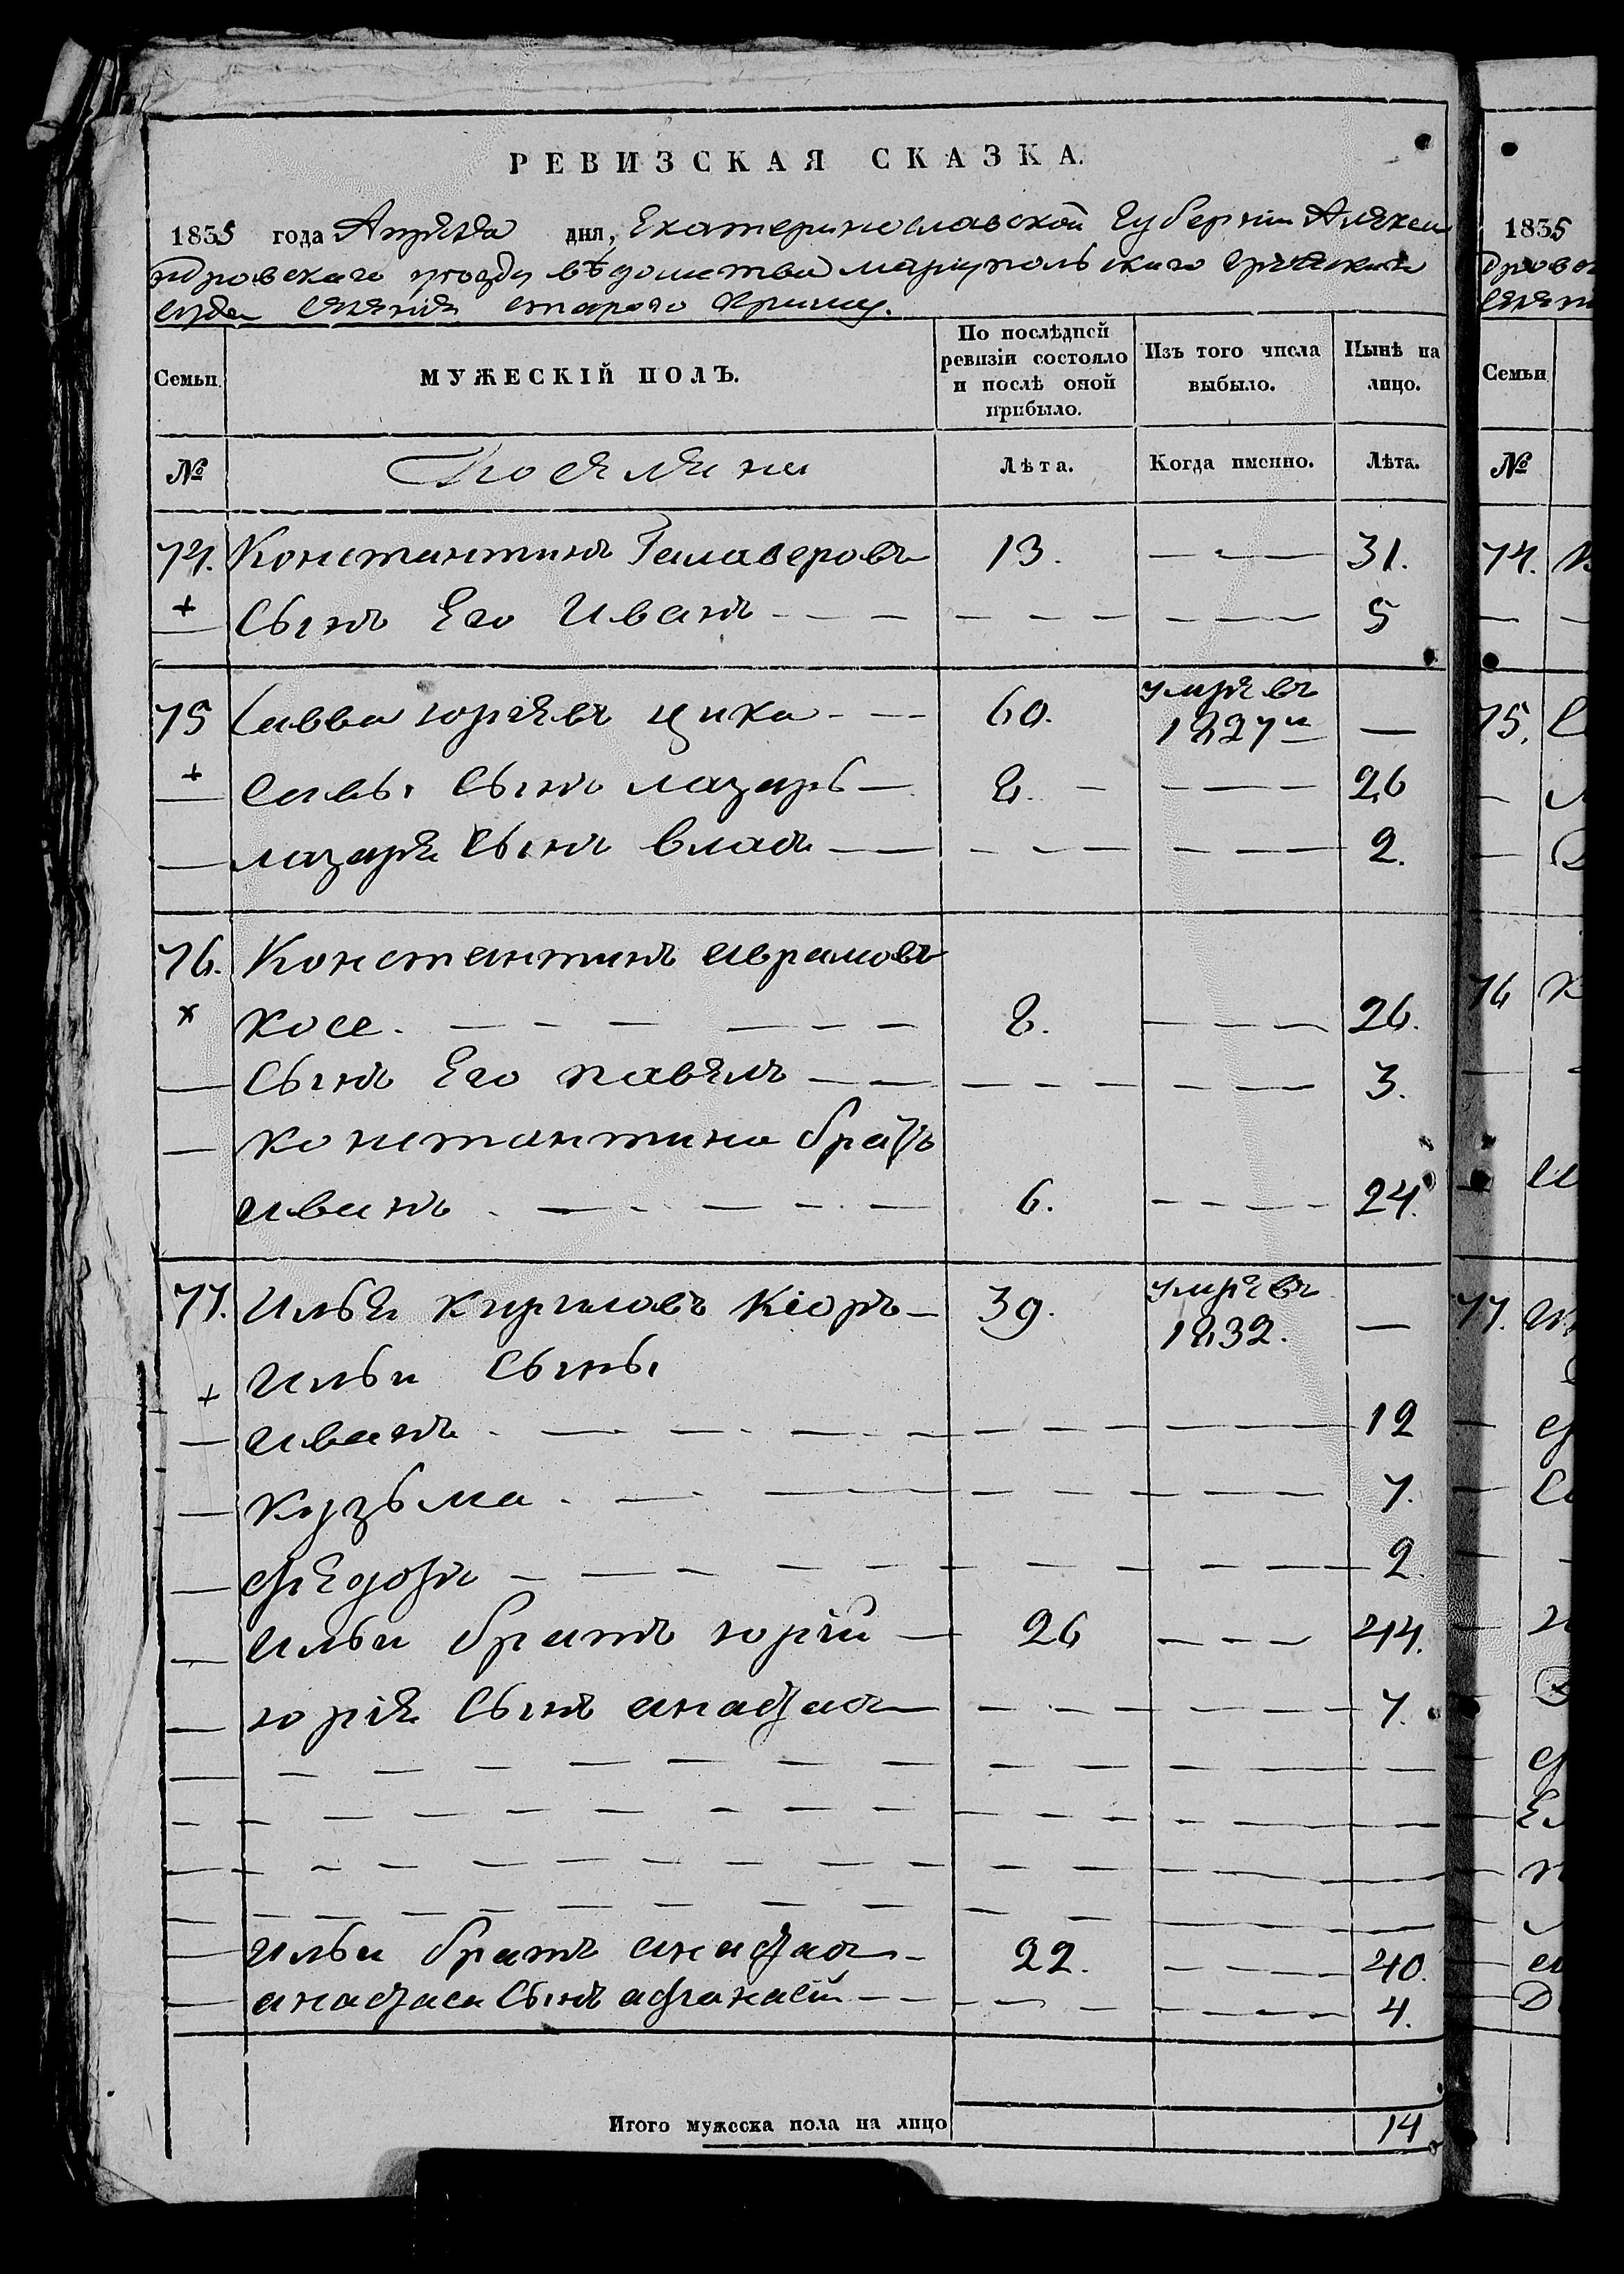 РЕВИЗСКАЯ СКАЗКА.
1835 года Апреля дня, Екатеринославской Губерніи Алексан
дровскаго уезда вѣдомства мариупольскаго греческаго
суда селенія стараго Крыму.
Семьи. МУЖЕСКІЙ ПОЛЪ. По послѣдней ревизіи состояло и послѣ оной прибыло. Изъ того числа выбыло. Нынѣ на лицо.
№ Поселяни Лѣта. Когда именно. Лѣта.
74. Константинъ 13. 31.
Сынъ Его Иванъ 5
75 Савва юрьевъ цика 60. умре въ 1827м —
савы Сынъ лазарь 8. 26
лазаря Сынъ владъ 2.
76. Константинъ аврамовъ
косе 8. 26.
Сынъ Его павелъ 3.
константина братъ
иванъ 6. 24.
77. Илья кириловъ Кіоръ 39. умре въ 1832. —
Ильи Сыны
иванъ 12
кузьма 7.
федоръ 2.
ильи братъ юрій 26 44.
юрія Сынъ анастасъ 7.
ильи братъ анастасъ 22. 40.
анастаса Сынъ афанасій 4.
Итого мужеска пола на лицо 14
1835
Семьи
№
74.
75.
76
77.